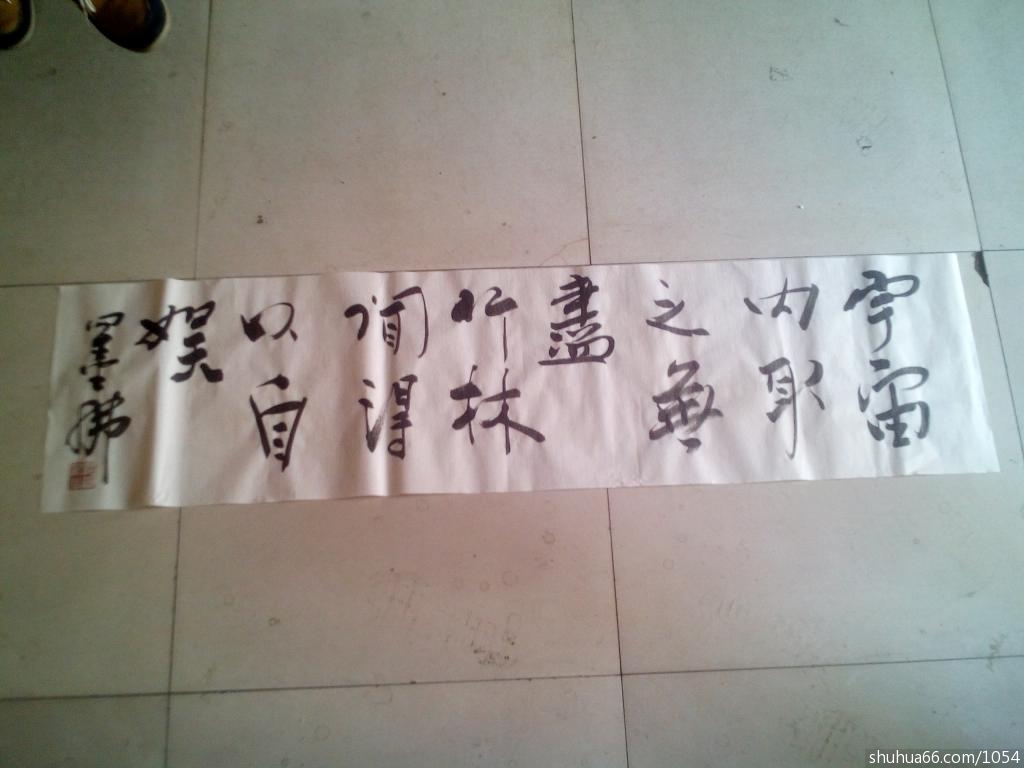 宇宙
内取
之無
盡
竹林
間得
以自
娱
shuhua66.com/1054